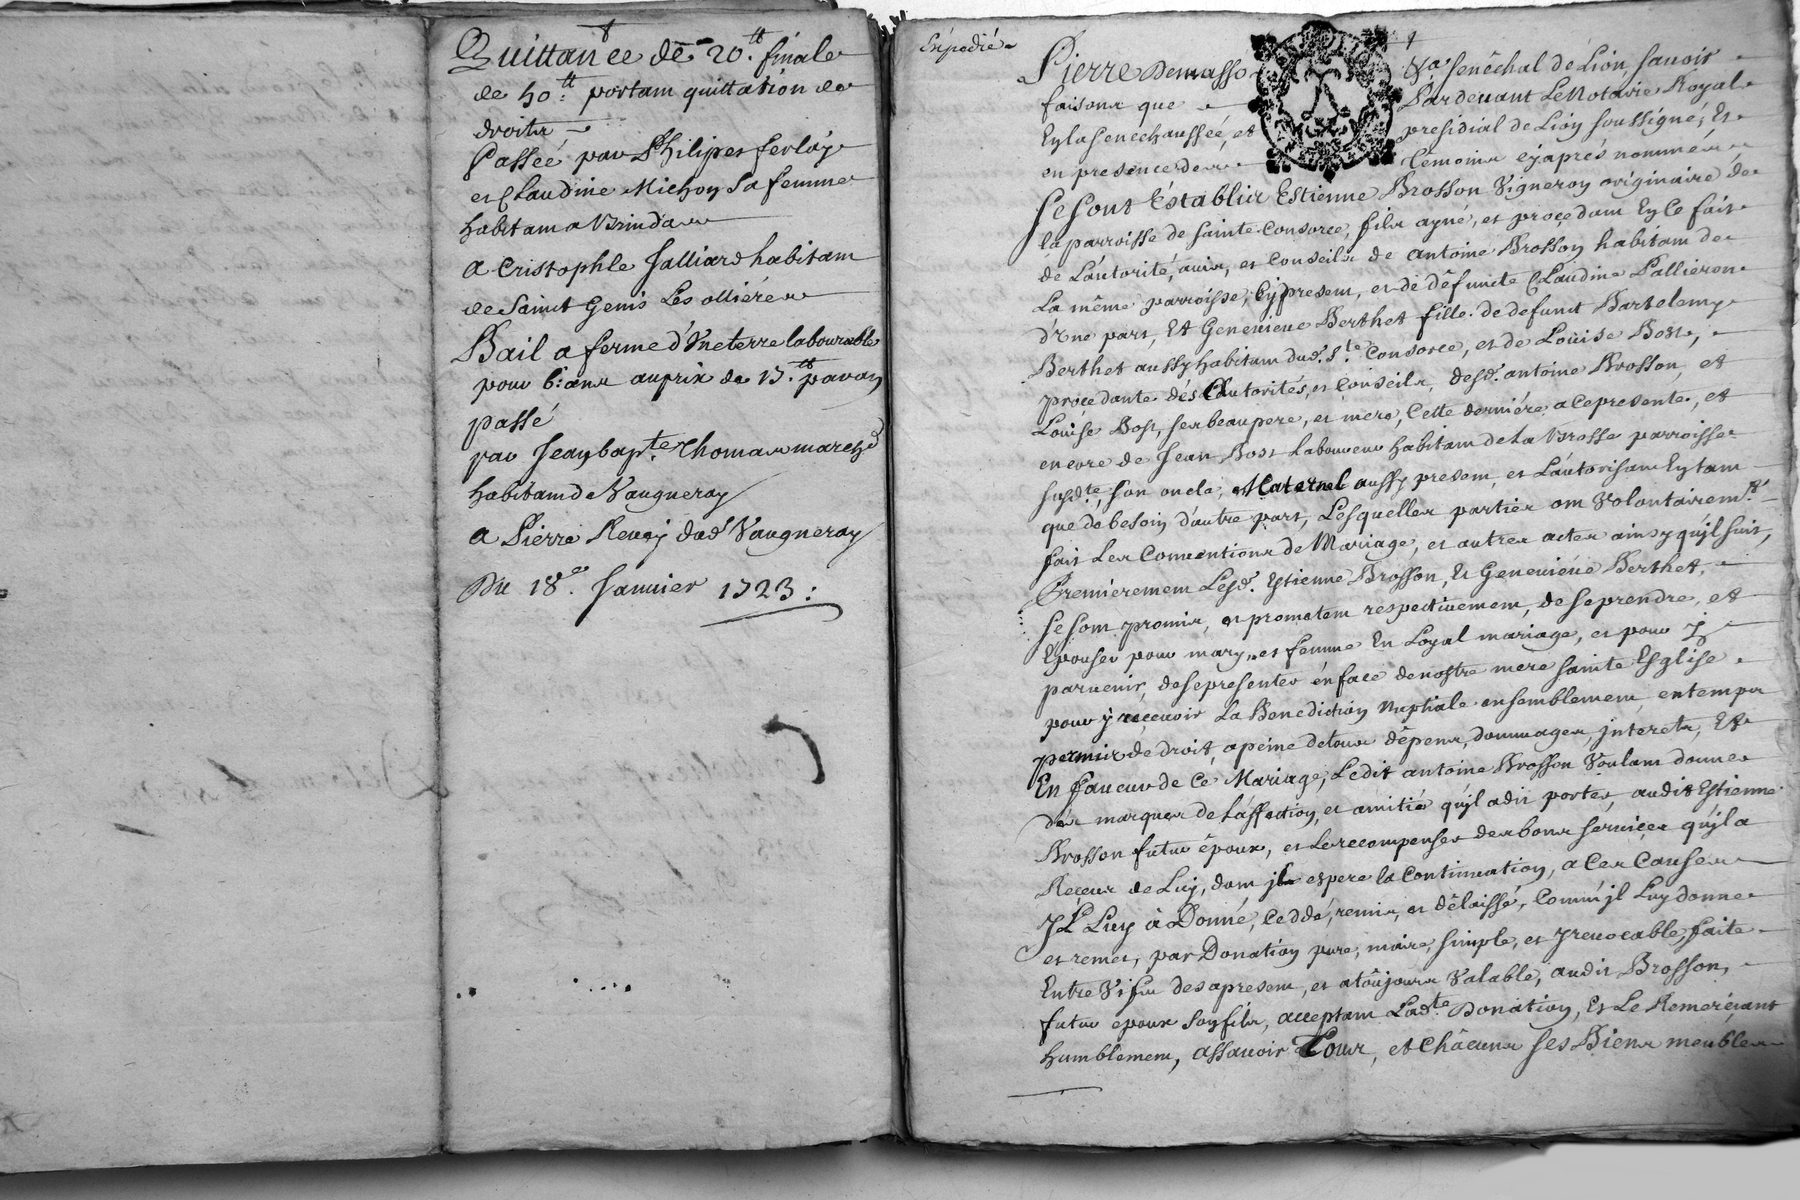 Quittance de 20.tt finale
de 50.tt portant quittation de
droits
Passée par Philipes ferlay
et Claudine Michon Sa femme
habitans a Brindas
A Cristophle Jalliard habitant
de Saint Genis Les ollières
Bail a ferme d'Une terre labourable
pour 6: ans au prix de 15.tt par an
passé
par Jean bap.te Thomas march.d
habitant de Vaugneray
a Pierre Revay dud. Vaugneray
Du 18.e Janvier 1723:
Expedié
Pierre Demasso Senêchal de Lion Savoir
faisons que Pardevant Le Notaire Royal
En la Senechaussée, et presidial de Lion Soussigné, Et
en presence des temoins cy aprés nommés
Se Sont Établis Estienne Brosson Vigneron originaire de
la parroisse de Sainte Consorce, fils ayné, et procedant En ce fait
de L'autorité, avis, et Conseils de Antoine Brosson habitant de
La même parroisse, Cy present, et de défunte Claudine Pallieron
d'Une part, Et Genevieve Berthet fille de defunt Bartelemy
Berthet aussy habitant dud. S.te Consorce, et de Loüise Bost,
procedante dés Autorités, et Conseils, desd. antoine Brosson, et
Loüise Bost, ses beaupere, et mere, Cette derniére a ce presente, et
encore de Jean Bost Laboureur habitant de La Brosse parroisse
susd.te, Son oncle, Maternel aussy present, et L'autorisant En tant
que de besoin d'autre part, Lesquelles parties ont Volontairem.t
fait Les Conventions de Mariage, et autres actes ainsy qu'jl suit,
Premiérement Lesd. Estienne Brosson, Et Geneviéve Berthet,
se sont promis, et prometent respectivement, de se prendre, et
Epouser pour mary, et femme En Loyal mariage, et pour Y
parvenir, de se presenter én face de nostre mere Sainte Esglise
pour ÿ recevoir La Benediction Nuptiale ensemblement, en temps
permis de droit, a peine de tous dêpens, dommages, jnterets, Et
En faveur de Ce Mariage, Ledit antoine Brosson Voulant donner
des marques de L'affection, et amitié qu'jl a dit porter, audit Estienne
Brosson futur époux, et Le recompenser des bons services qu'jl a
Reçeus de Luy, dont jl espere la Continuation, a Ces Causes
JL Luy à Donné, Ceddé, remis, et dêlaissé, Comm'jl Luy donne
et remet, par Donation pure, maire, simple, et Jrevocable, faite
Entre Vifs des apresent, et a toûjours Valable, audit Brosson,
futur epoux Son fils, acceptant Lad.te Donation, Et Le Remerciant
humblement, assavoir Tous, et Châcuns ses Biens meubles